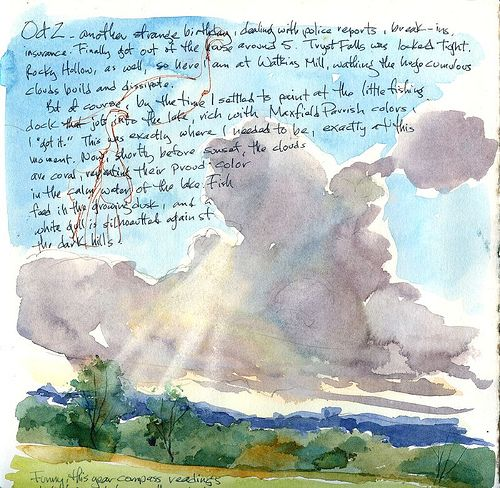 Oct 2 - another strange birthday, dealing with police reports, break-ins,
insurance. Finally got out of the house around 5. Tryst Falls was locked tight.
Rocky Hollow, as well so here I am at Watkins Mill, watching the huge cumulous
clouds build and dissipate.
But of course, by the time I settled to paint at the little fishing
dock that juts into the lake, rich with Maxfield Parrish colors,
I "got it." This was exactly where I needed to be, exactly at this
moment. Now, shortly before sunset, the clouds
are coral, repeating their proud color
in the calm water of the lake. Fish
feed in the growing dusk, and a
white gull is silhouetted against
the dark hills.
Funny, this year compass readings